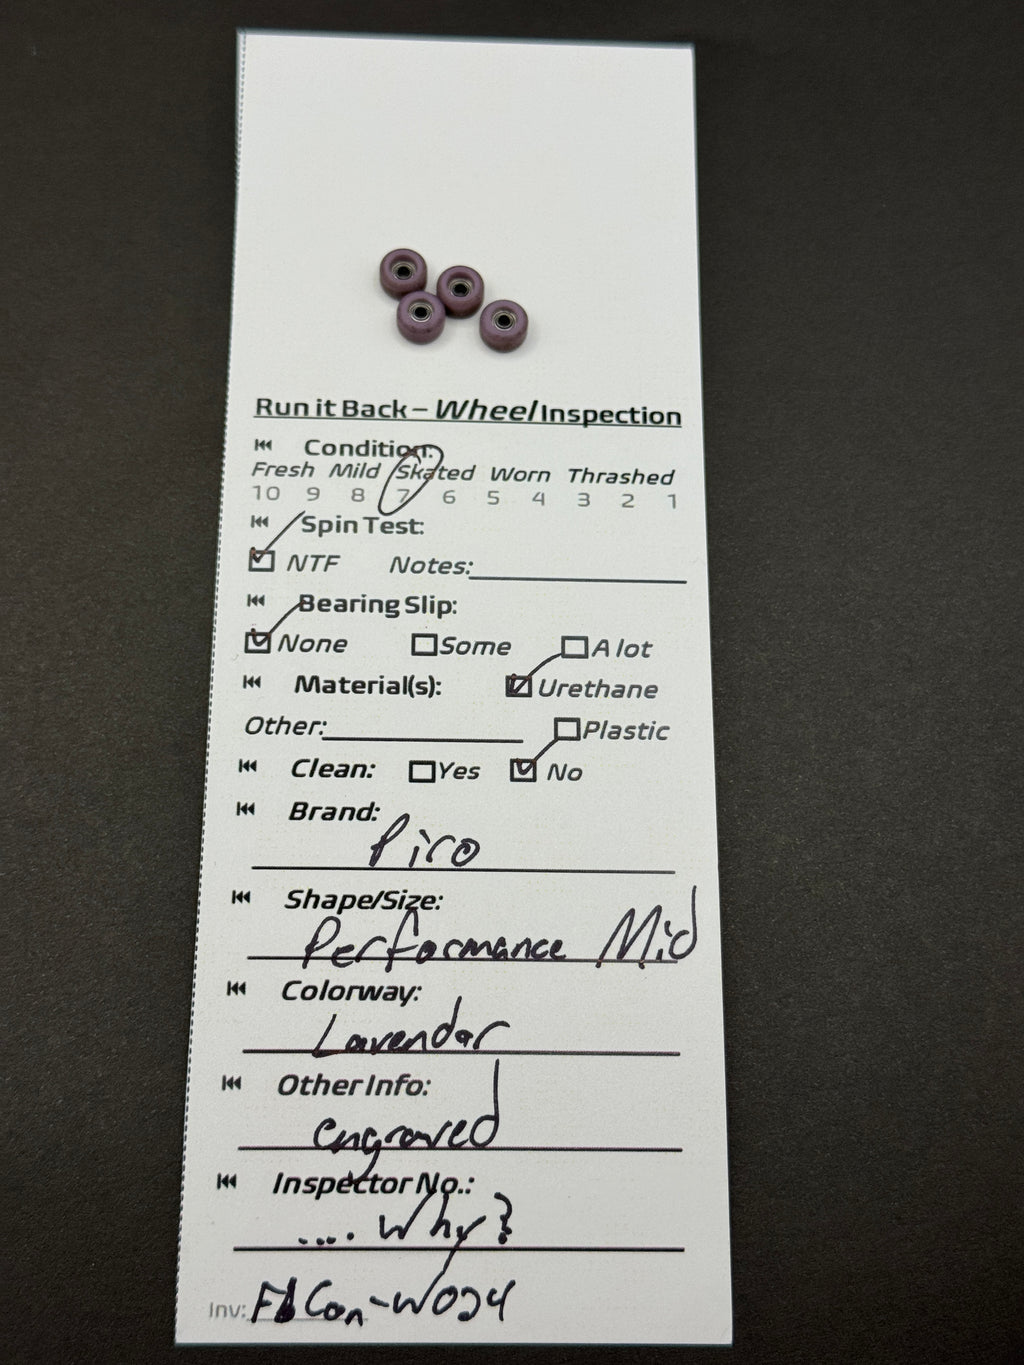 Run it Back – Wheel Inspection
Condition:
Fresh Mild Skated Worn Thrashed
10 9 8 7 6 5 4 3 2 1
Spin Test:
NTF Notes:
Bearing Slip:
None Some A lot
Material(s): Urethane
Other: Plastic
Clean: Yes No
Brand:
Piro
Shape/Size:
Performance Mid
Colorway:
Lavendar
Other Info:
engraved
Inspector No.:
.... Why?
Inv: FBCon-W024